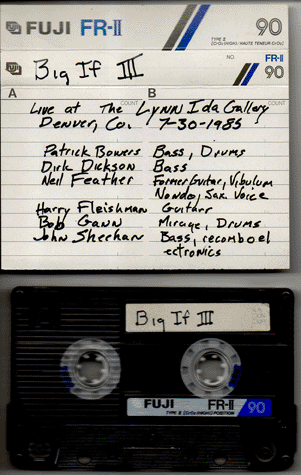 FUJI FR-II
90
TYPE II (CrO₂) (HIGH) / HAUTE TENEUR (CrO₂)
Big If III
NO.
FR-II
90
A COUNT B COUNT
Live at The Lynn Ida Gallery
Denver, Co. 7-30-1985
Patrick Bowers Bass, Drums
Dirk Dickson Bass
Neil Feather Former Guitar, Vibulum
Nondo, Sax Voice
Harry Fleishman Guitarr
Bob Gann Mirage, Drums
John Sheehan Bass, recombo el
ectronics
Big If III
FUJI FR-II 90
TYPE II (HIGH) POSITION